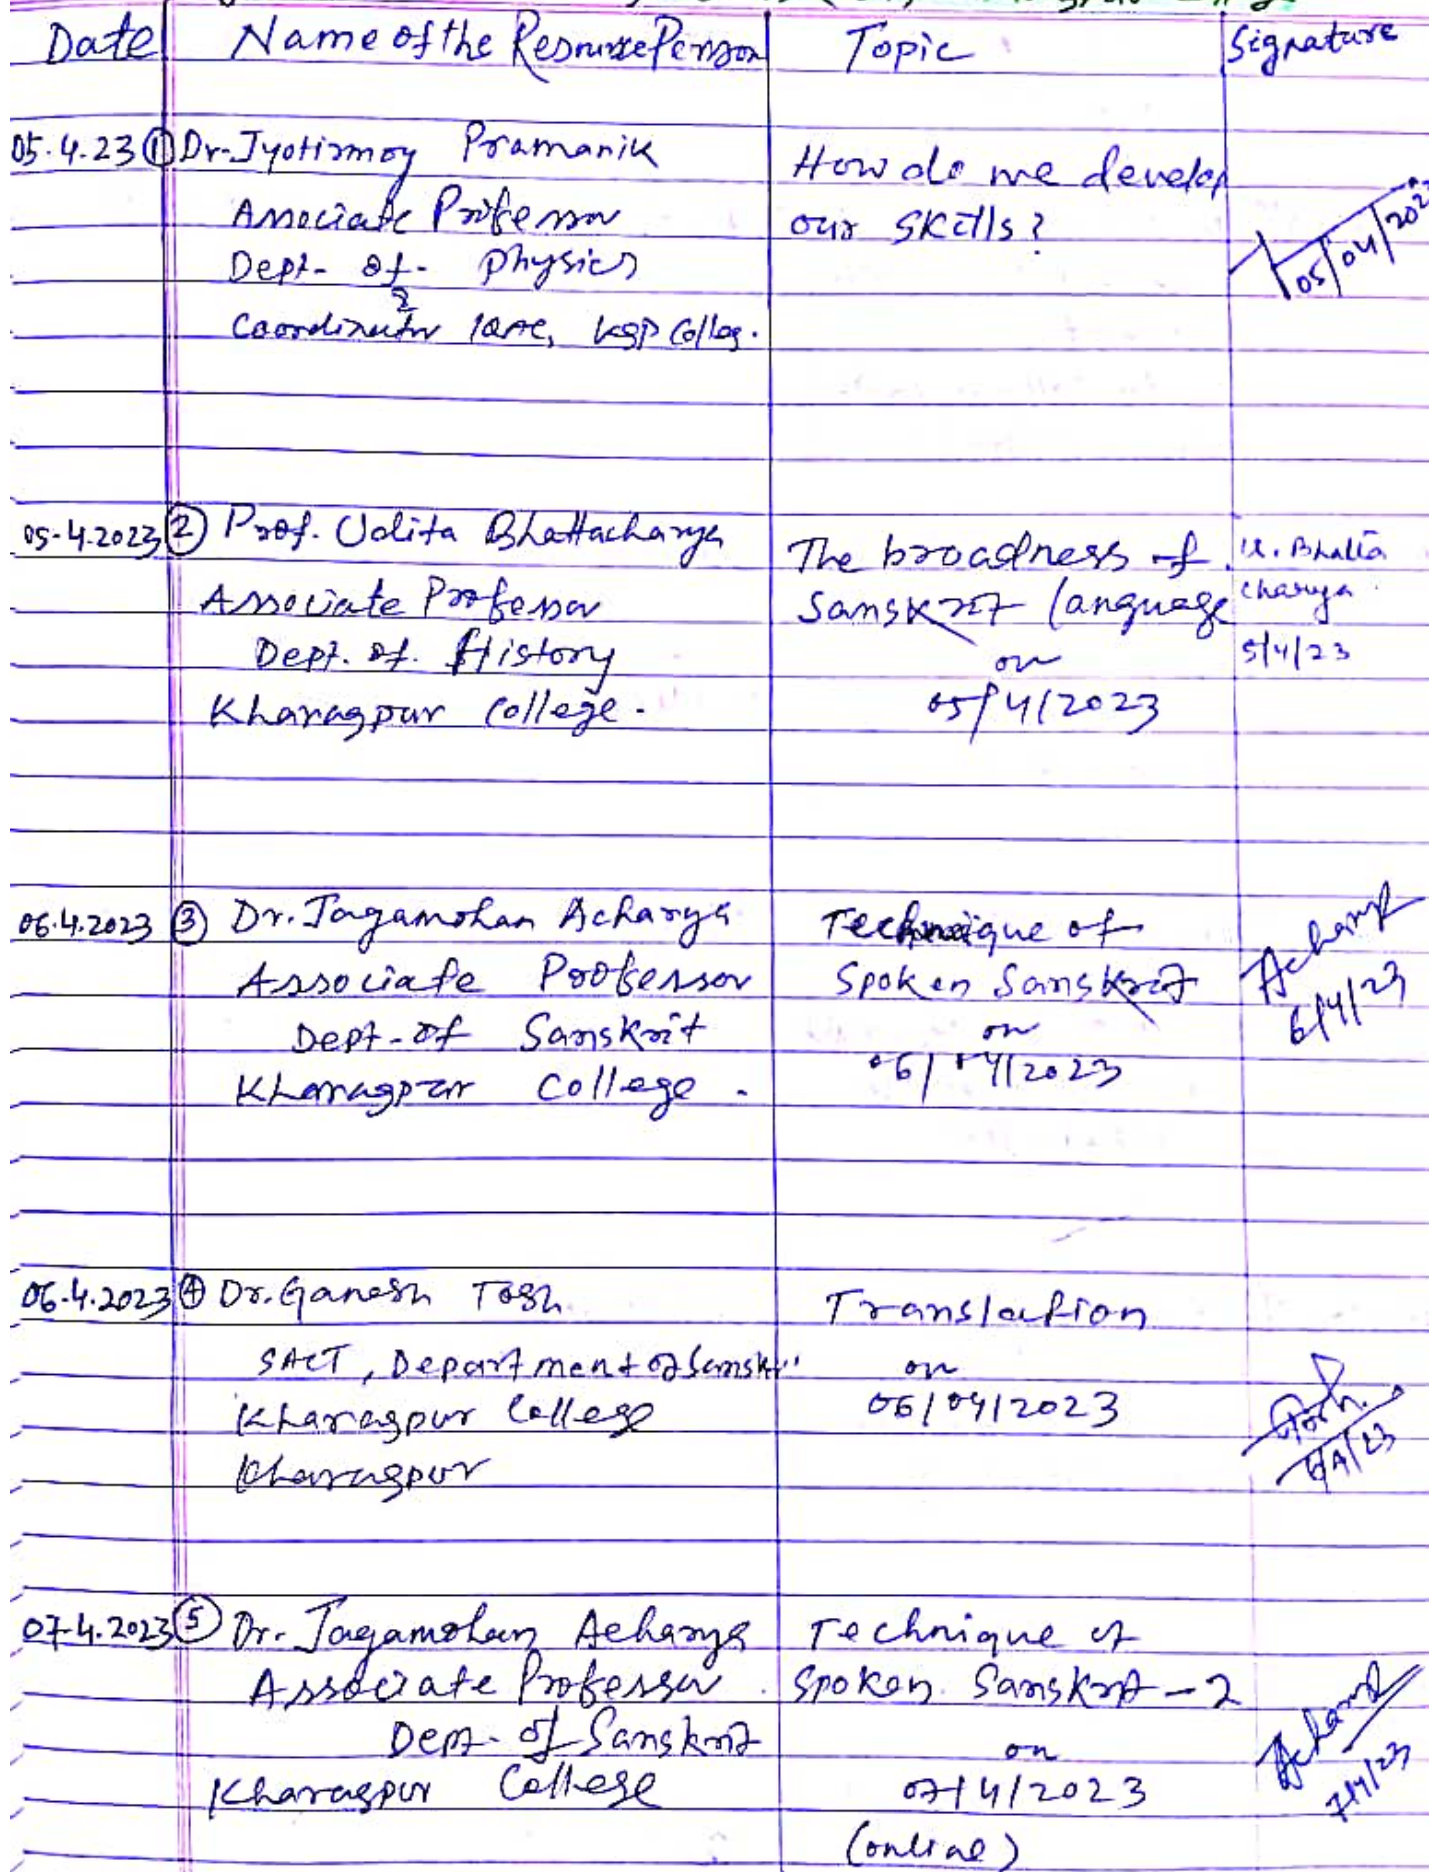 Date Name of the Resource Person Topic Signature
05.4.23 ① Dr. Jyotirmoy Pramanik
Associate Professor
Dept. of Physics
&
Coordinator IQAC, KGP College.
How do we develop
our skills?
05/04/202
05.4.2023 ② Prof. Udita Bhattacharya
Associate Professor
Dept. of. History
Kharagpur College.
The broadness of
Sanskrit language
on
05/4/2023
U. Bhatta
charya
5/4/23
06.4.2023 ③ Dr. Jagamohan Acharya
Associate Professor
Dept. of Sanskrit
Kharagpur College.
Technique of
Spoken Sanskrit
on
06/04/2023
Acharya
6/4/23
06.4.2023 ④ Dr. Ganesh Tosh
SACT, Department of Sanskrit
Kharagpur College
Kharagpur
Translation
on
06/04/2023
Tosh.
6/4/23
07.4.2023 ⑤ Dr. Jagamohan Acharya
Associate Professor
Dept. of Sanskrit
Kharagpur College
Technique of
Spoken Sanskrit - 2
on
07/4/2023
(online)
Acharya
7/4/23